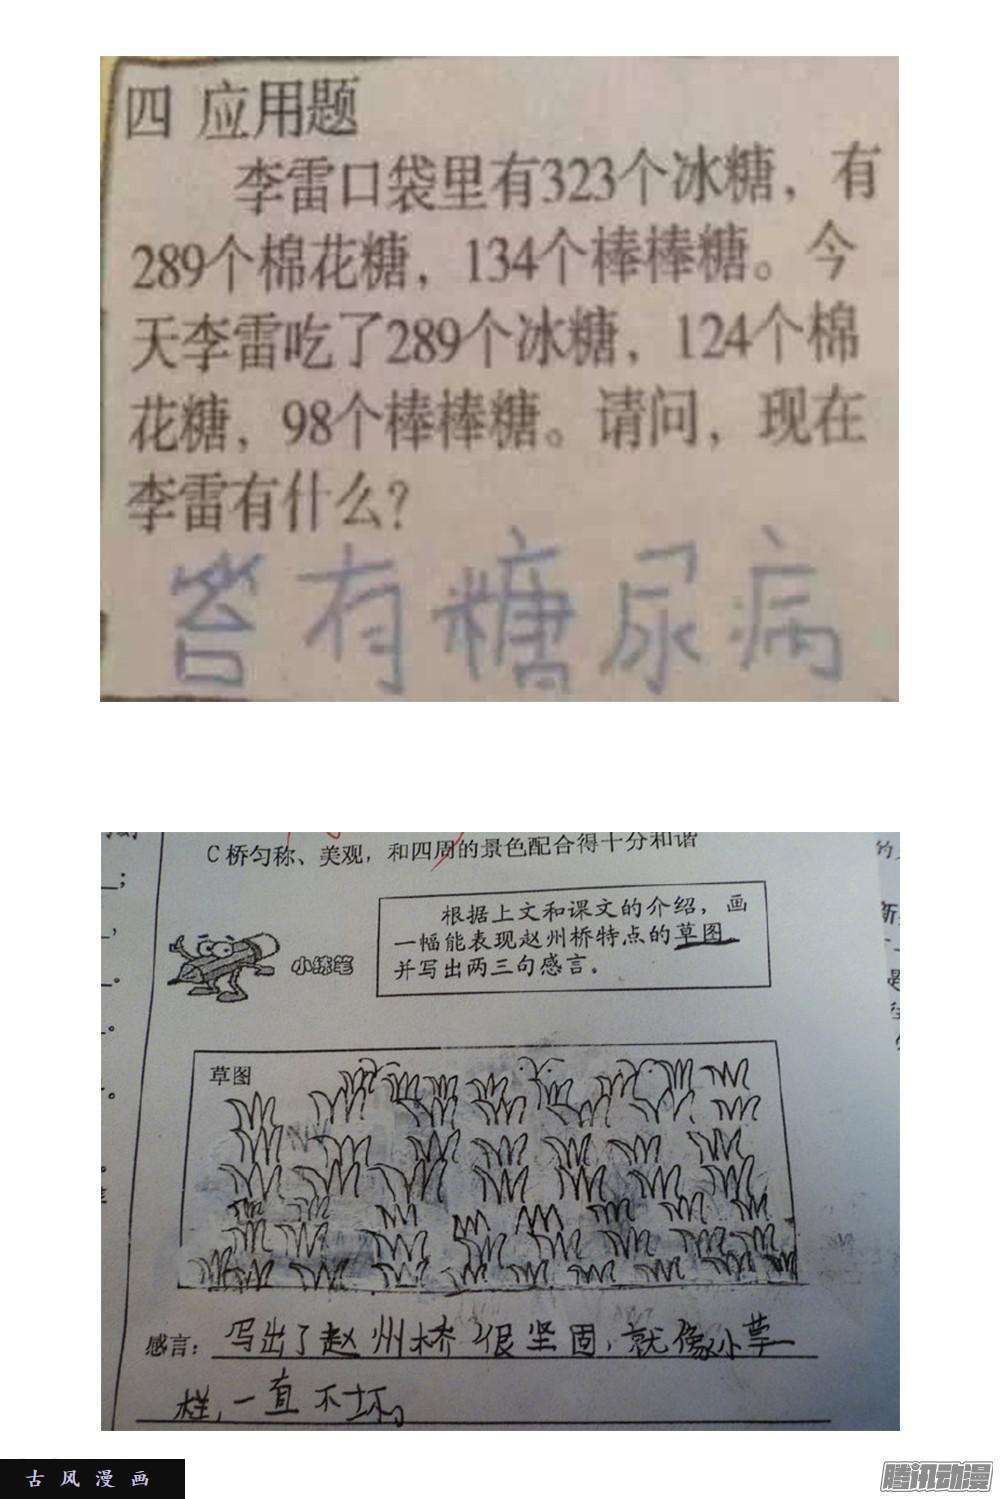 四 应用题
李雷口袋里有323个冰糖，有
289个棉花糖，134个棒棒糖。今
天李雷吃了289个冰糖，124个棉
花糖，98个棒棒糖。请问，现在
李雷有什么？
答有糖尿病
C 桥匀称、美观，和四周的景色配合得十分和谐
根据上文和课文的介绍，画
一幅能表现赵州桥特点的草图，
并写出两三句感言。
小练笔
草图
感言：写出了赵州桥很坚固，就像小草
一样，一直不坏。
古风漫画
腾讯动漫